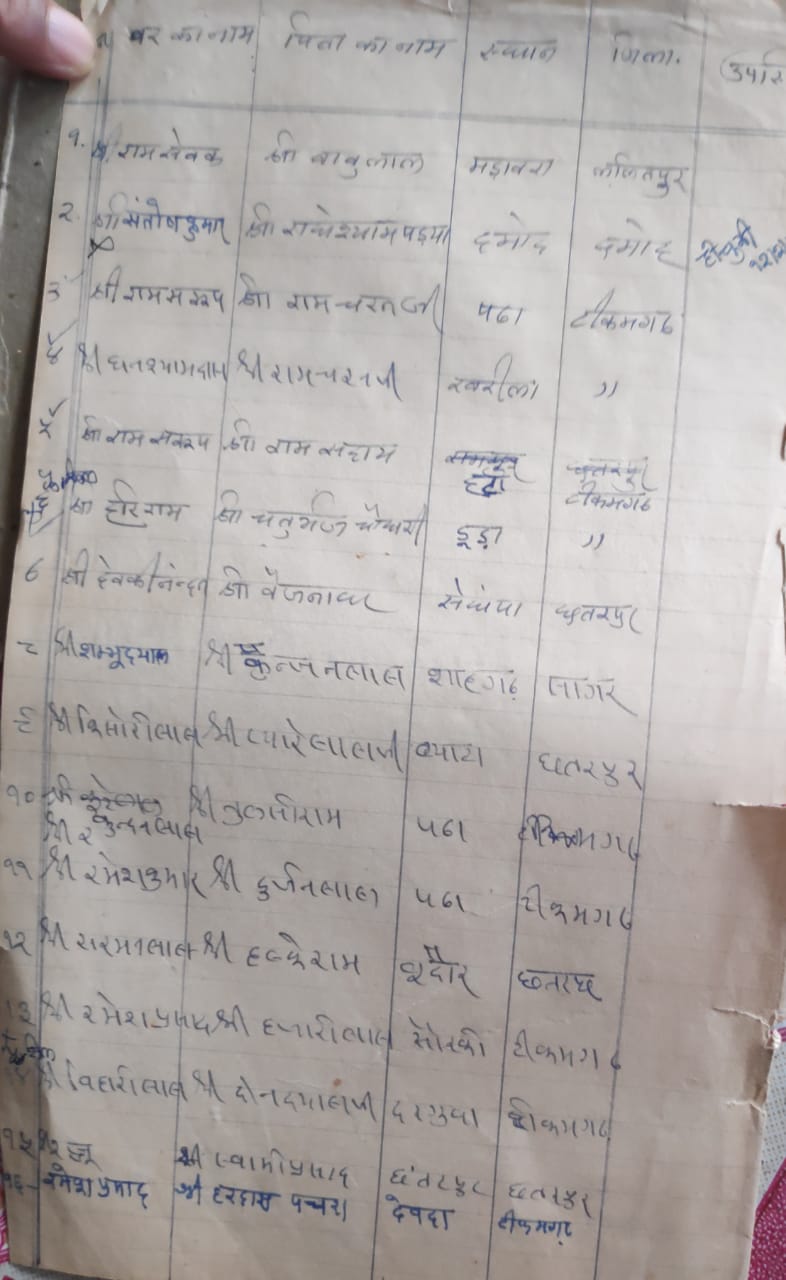 वर का नाम पिता का नाम स्थान जिला. उपरि
१. श्री रामसेवक श्री बाबुलाल मडावरा ललितपुर
२. श्री संतोषकुमार श्री राधेश्याम पडया दमोद दमोह
३ श्री रामसरूप श्री रामचरनजी पठा टीकमगढ
४ श्री घनश्यामदास श्री रामचरनजी खरीला "
५ श्री राम सवरूप श्री राम सहाय छतरपुर
हटा टीकमगढ
६ श्री हरिराम श्री चतुर्भुज चौधरी डूडा "
७ श्री देवकीनंन्दन श्री वैजनाथ सेंधपा छतरपुर
८ श्री शम्भूदयाल श्री कुन्जनलाल शाहगढ़ सागर
९ श्री किसोरीलाल श्री प्यारेलालजी छतरपुर
१० श्री तुलसीराम पठा टीकमगढ
श्री कुन्दनलाल
११ श्री रमेशकुमार श्री दुर्जनलाल पठा टीकमगढ
१२ श्री सरमनलाल श्री हल्केराम छतरपुर
१३ श्री रमेश प्रसाद श्री हजारीलाल सोरकी टीकमगढ
१४ श्री विहारीलाल श्री दीनदयालजी दरगुवा टीकमगढ
१५ श्री स्वामीप्रसाद छंतरपुर छतरपुर
१६- रमेश प्रसाद श्री हरदास पचरा देवदा टीकमगढ़